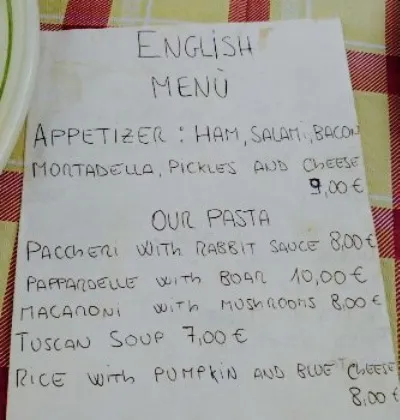 ENGLISH
MENÙ
APPETIZER : HAM, SALAMI, BACON
MORTADELLA, PICKLES AND CHEESE
9,00 €
OUR PASTA
PACCHERI WITH RABBIT SAUCE 8,00 €
PAPPARDELLE WITH BOAR 10,00 €
MACARONI WITH MUSHROOMS 8,00 €
TUSCAN SOUP 7,00 €
RICE WITH PUMPKIN AND BLUE CHEESE
8,00 €